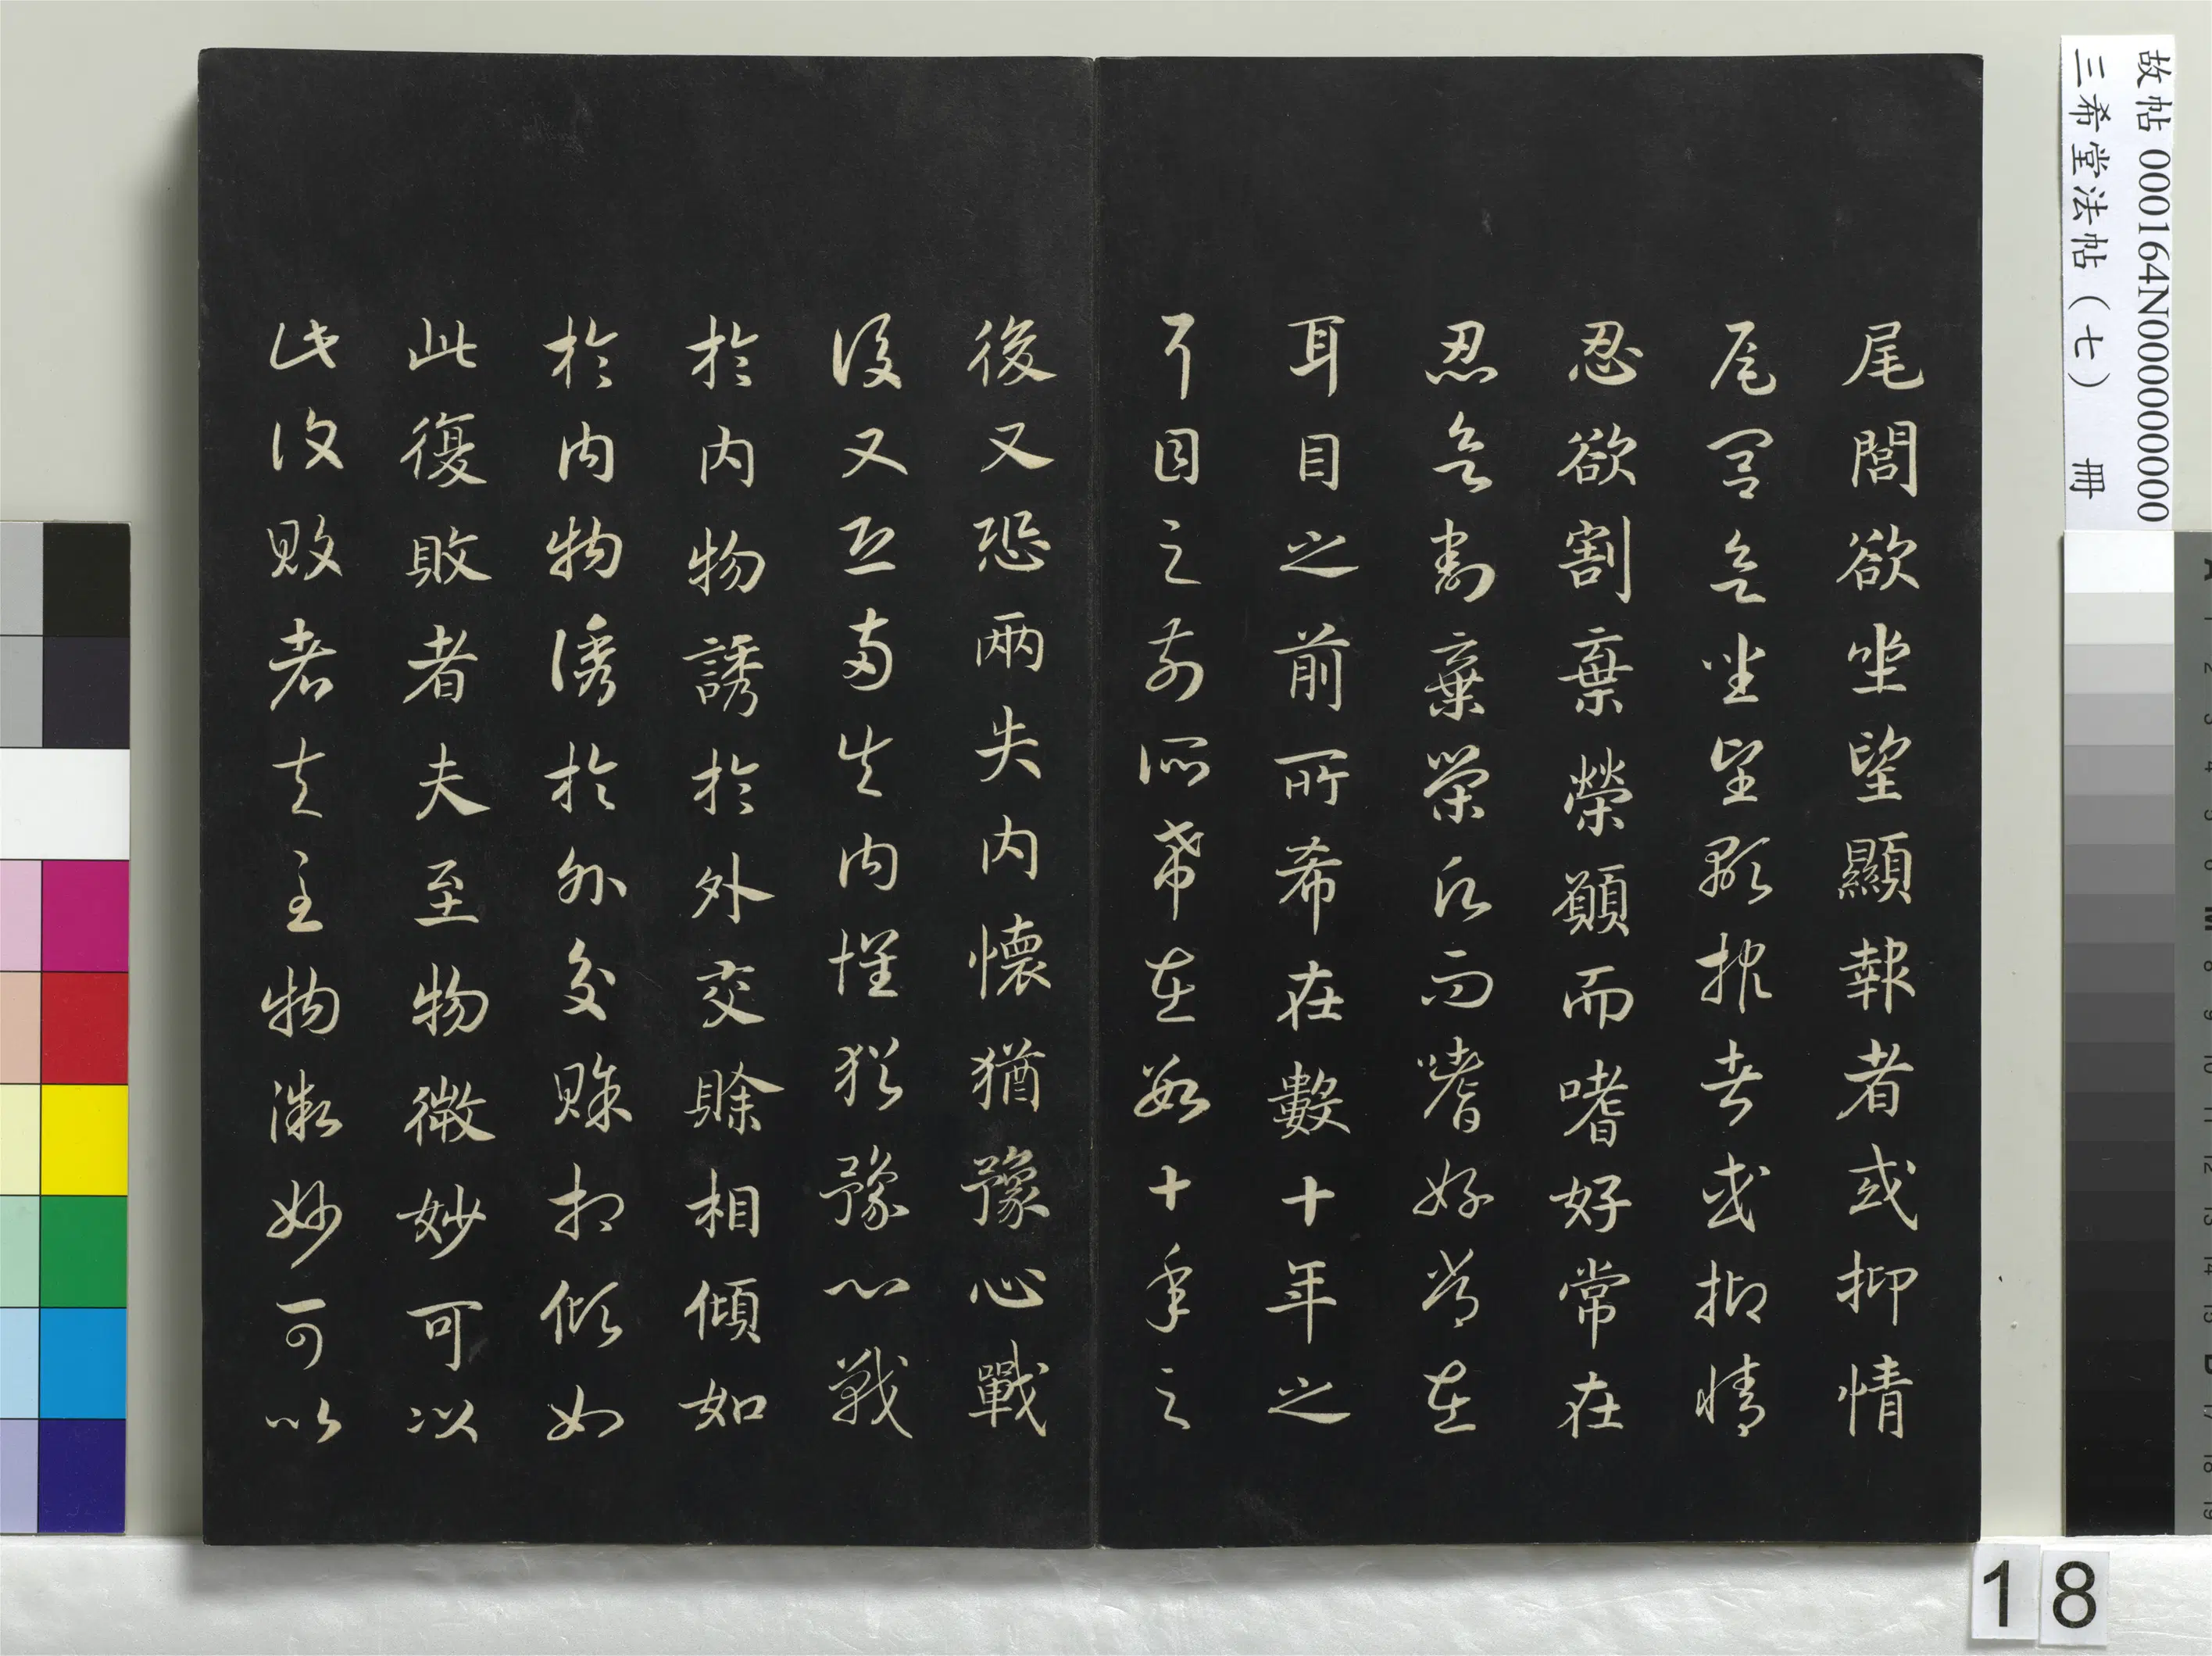 故帖 000164N000000000
三希堂法帖（七） 冊
尾閭欲坐望顯報者或抑情
尾閭欲坐望顯報者或抑情
忍欲割棄榮願而嗜好常在
忍欲割棄榮願而嗜好常在
耳目之前所希在數十年之
耳目之前所希在數十年之
後又恐兩失內懷猶豫心戰
後又恐兩失內懷猶豫心戰
於內物誘於外交賒相傾如
於內物誘於外交賒相傾如
此復敗者夫至物微妙可以
此復敗者夫至物微妙可以
18